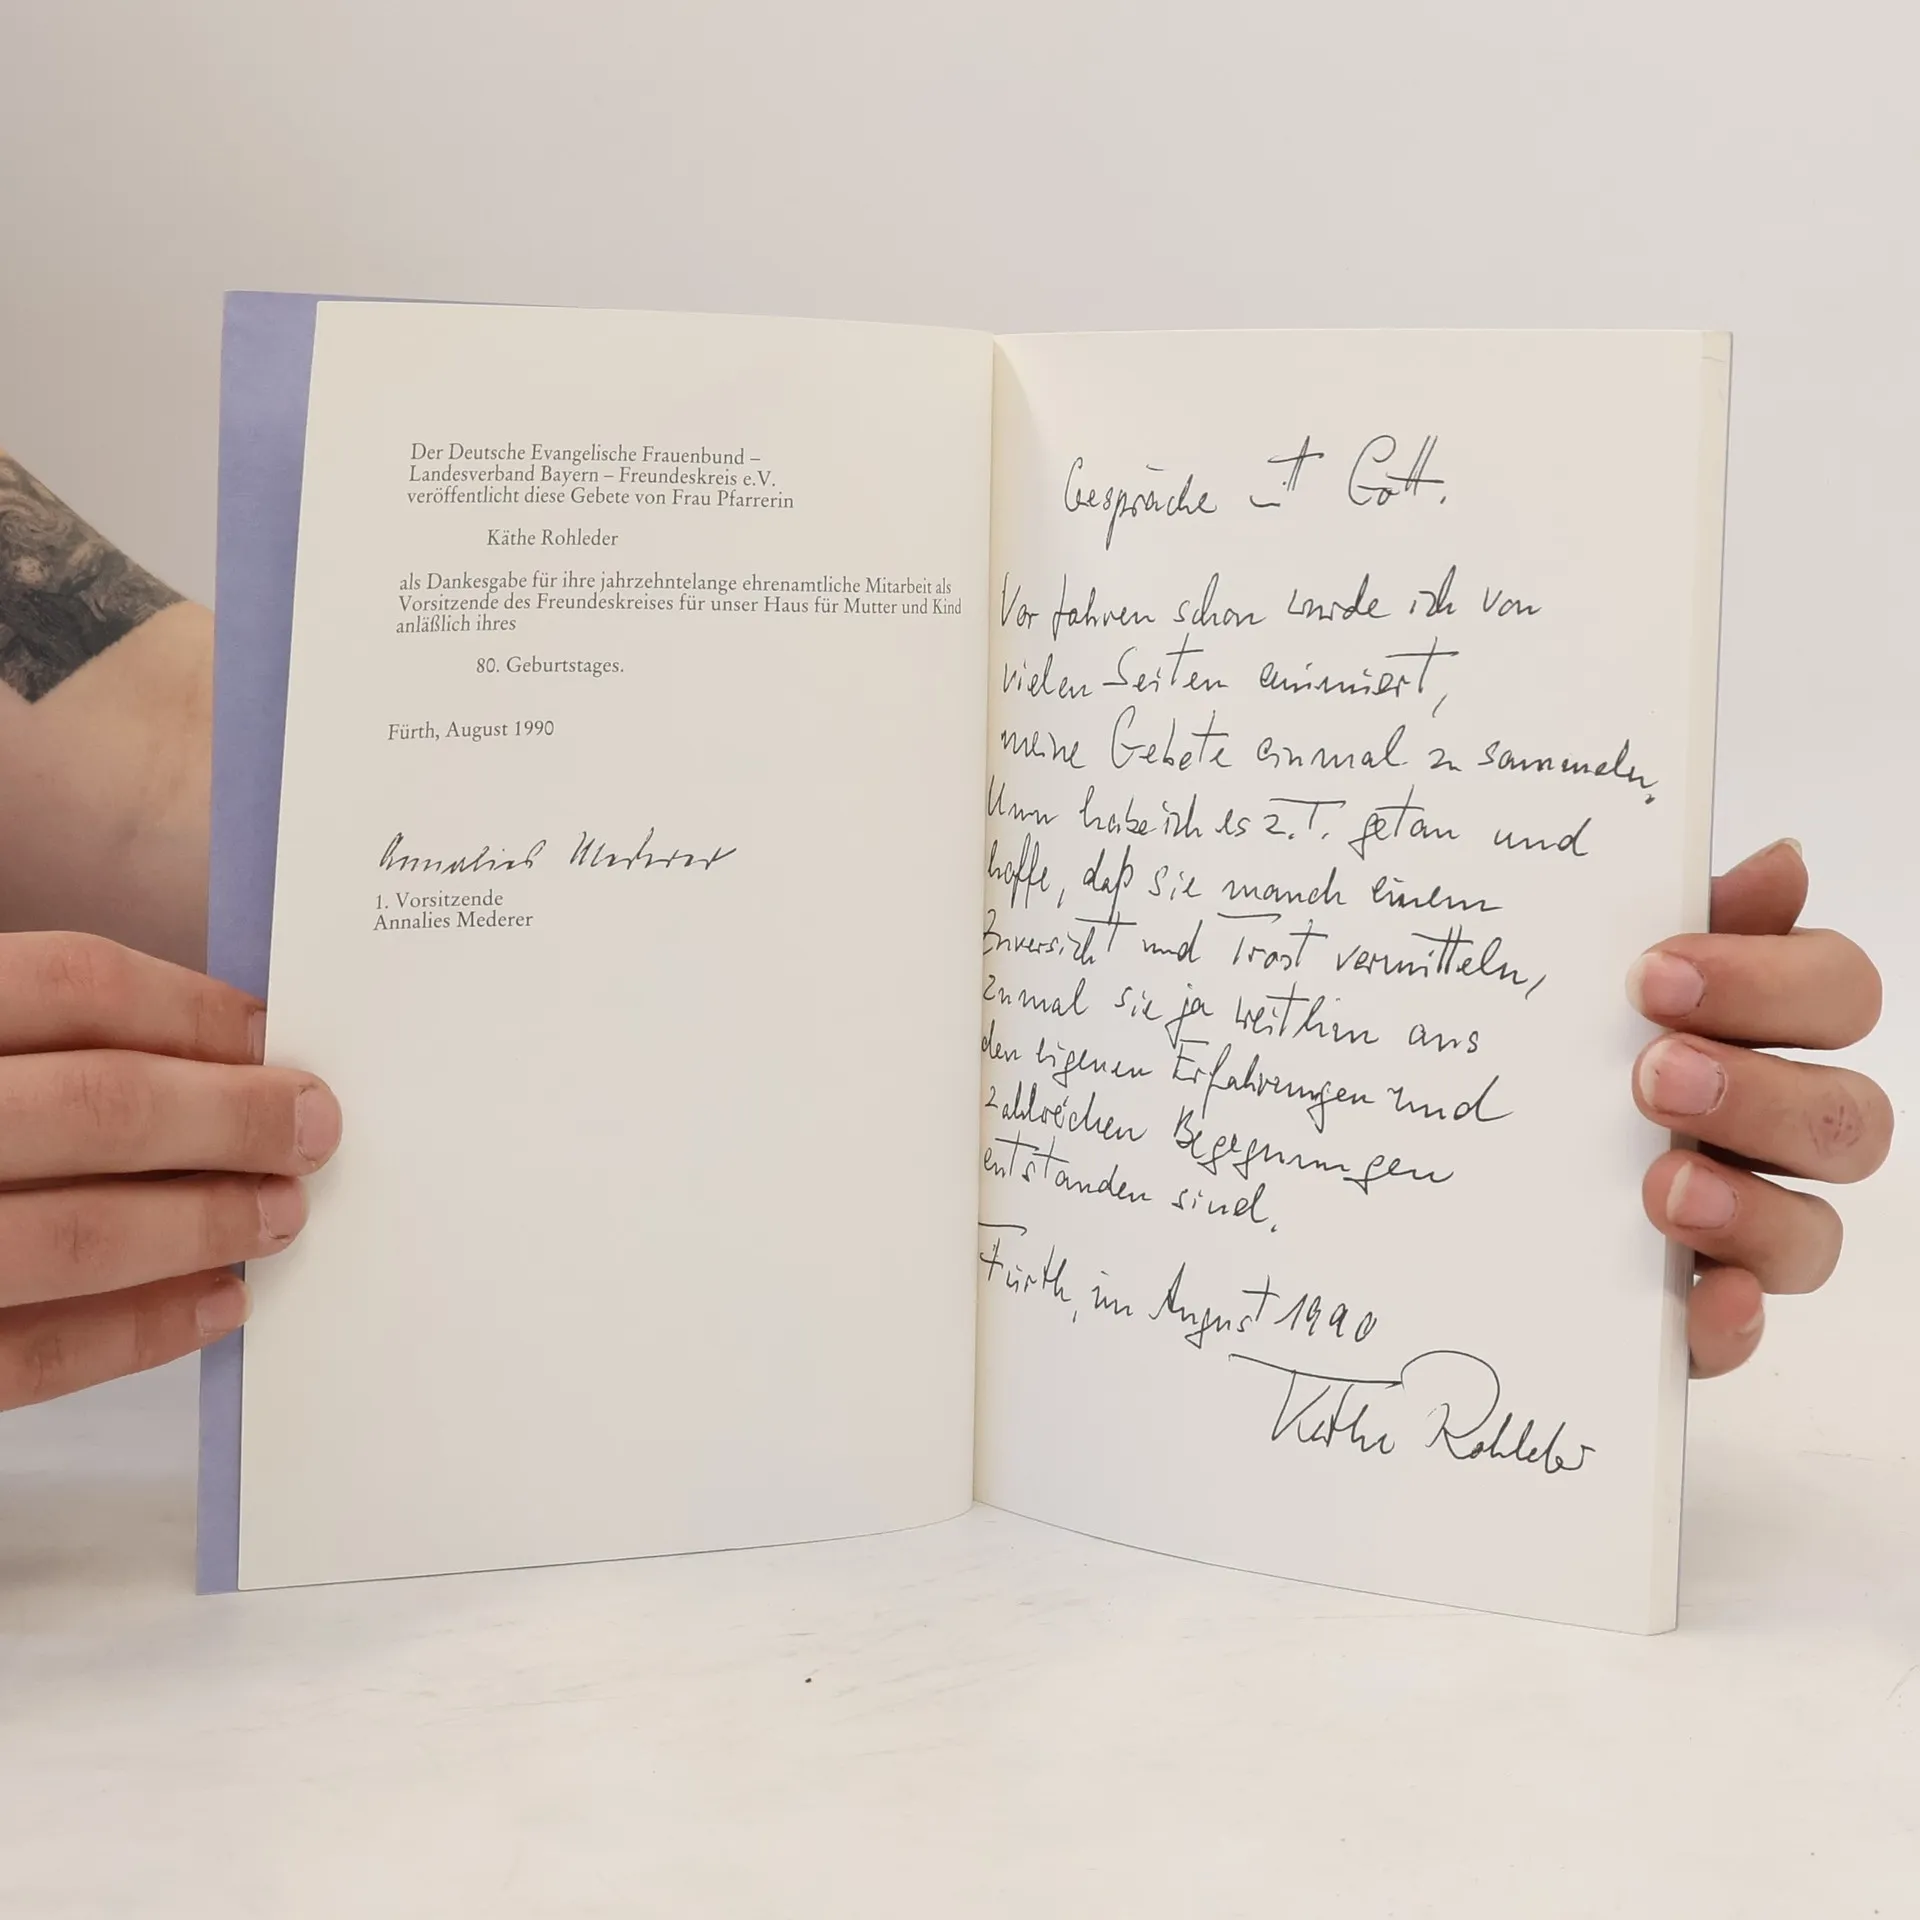 Der Deutsche Evangelische Frauenbund –
Landesverband Bayern – Freundeskreis e.V.
veröffentlicht diese Gebete von Frau Pfarrerin
Käthe Rohleder
als Dankesgabe für ihre jahrzehntelange ehrenamtliche Mitarbeit als
Vorsitzende des Freundeskreises für unser Haus für Mutter und Kind
anläßlich ihres
80. Geburtstages.
Fürth, August 1990
Annalies Mederer
1. Vorsitzende
Annalies Mederer
Gespräche mit Gott.
Vor Jahren schon wurde ich von
vielen Seiten animiert,
meine Gebete einmal zu sammeln.
Nun habe ich es z.T. getan und
hoffe, daß sie manch einem
Zuversicht und Trost vermitteln,
zumal sie ja weithin aus
den eigenen Erfahrungen und
zahlreichen Begegnungen
entstanden sind.
Fürth, im August 1990
Käthe Rohleder